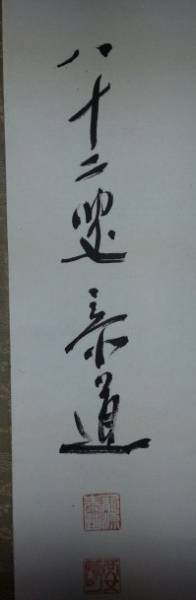 八十二叟泰道